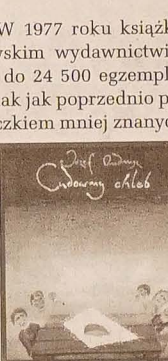 W 1977 roku książk
wskim wydawnictwi
do 24 500 egzempl
ak jak poprzednio p
czkiem mniej znanyc
Józef
Cudowny chleb